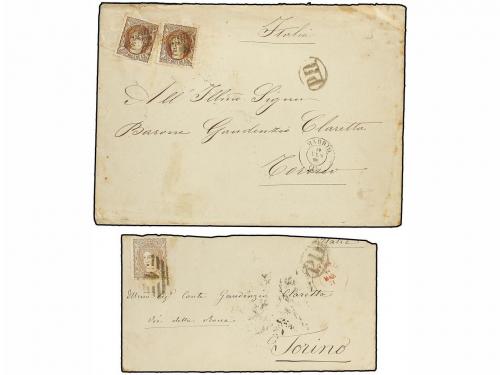 Italia
PD
All' Illmo Signor
Barone Gaudenzio Claretta
MADRID
Torino
PD
Italie
Illmo Sigr Conte Gaudenzio Claretta
Via della Rocca
Torino